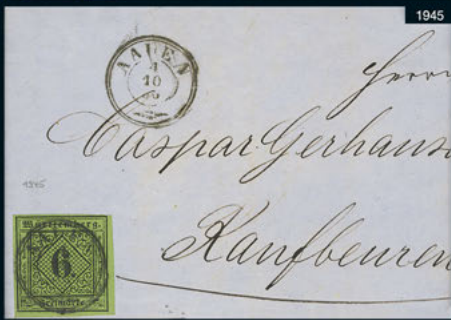 1945
AALEN
4
10
Herrn
Caspar Gerhause
1945
Kaufbeuren
Württemberg.
6.
Freimarke.